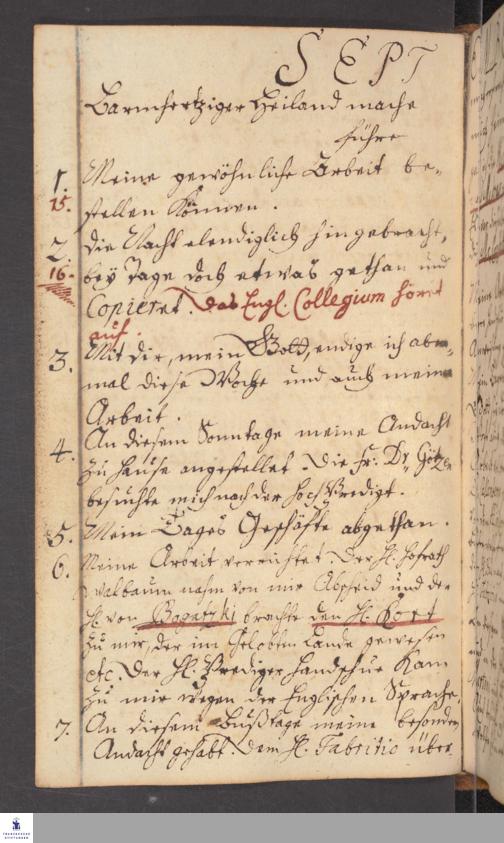 SEPT
Barmhertziger Heiland mache
führe
1. Meine gewöhnliche Arbeit be-
15. stellen können.
2. Die Nacht elendiglich hingebracht,
16. bey Tage doch etwas gethan und
Copieret. Das Engl. Collegium höret
auf.
3. Mit dir, mein Gott, endige ich aber-
mal diese Woche und auch meine
Arbeit.
4. An diesem Sonntage meine Andacht
zu Hause angestellet. Die Fr. Dr. Götzen
besuchte mich nach der Predigt.
5. Mein Tages Geschäfte abgethan.
6. Meine Arbeit verrichtet. Der H. Hofrath
Walbaum nahm von mir Abscheid und der
H. von Bogatzki brachte den H. Kort
zu mir, der im Gelobten Lande gewesen
etc. Der H. Prediger Handschue kam
zu mir wegen der Englischen Sprache
7. An diesem Bußtage meine besondere
Andacht gehabt. Dem H. Fabritio über-
FRANCKESCHE
STIFTUNGEN